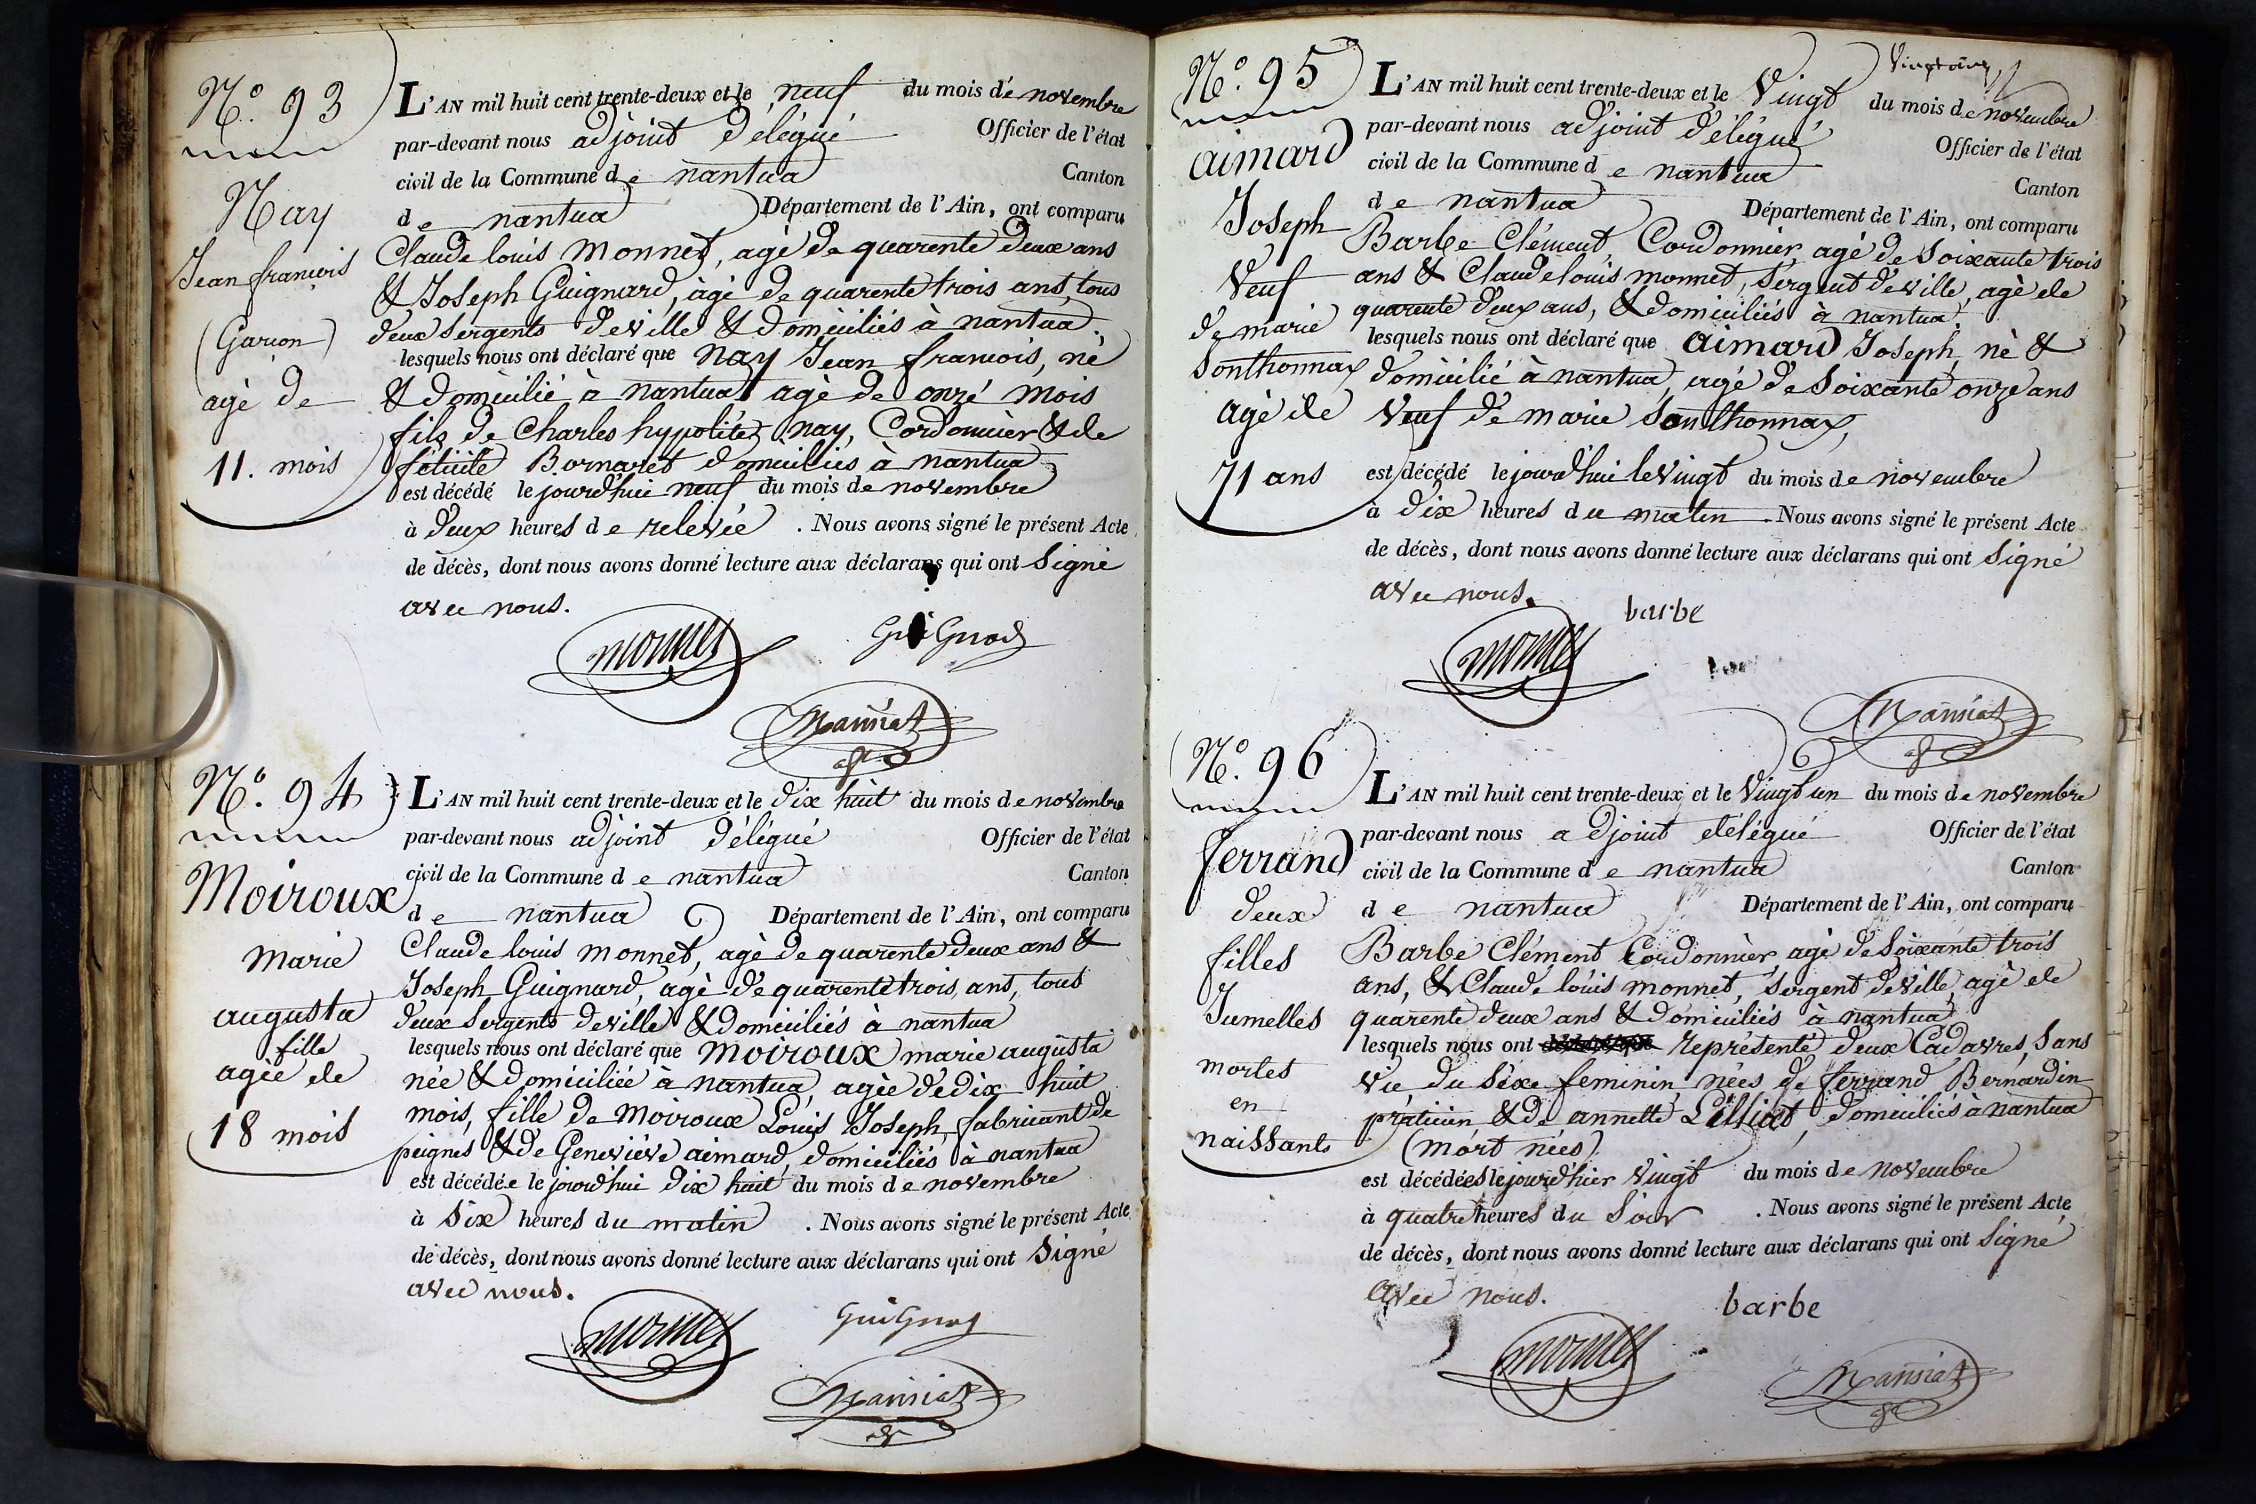 N.° 93
Nay
Jean françois
(Garçon)
agé de
11. mois
L'AN mil huit cent trente-deux et le neuf du mois de novembre
par-devant nous adjoint délégué Officier de l'état
civil de la Commune de nantua Canton
de nantua Département de l'Ain, ont comparu
Claude louis Monnet, agé de quarente deux ans
& Joseph Guignard, àgé de quarente trois ans, tous
deux sergents de ville & domiciliés à nantua.
lesquels nous ont déclaré que Nay Jean françois, né
& domicilié à nantua agé de onze mois
fils de Charles hypolite nay, Cordonnier & de
félicité Bornaret domiciliés à nantua
est décédé le jourd'hui neuf du mois de novembre
à deux heures de relevée . Nous avons signé le présent Acte
de décès, dont nous avons donné lecture aux déclarans qui ont Signé
avec nous.
monnet GuiGnard
Manniat
N.° 94
Moiroux
Marie
augusta
fille
agée de
18 mois
L'AN mil huit cent trente-deux et le dix huit du mois de novembre
par-devant nous adjoint délégué Officier de l'état
civil de la Commune de nantua Canton
de nantua Département de l'Ain, ont comparu
Claude louis Monnet, agé de quarente deux ans &
Joseph Guignard, agé de quarente trois ans, tous
deux Sergents de ville & domiciliés à nantua
lesquels nous ont déclaré que Moiroux marie augusta
née & domiciliée à nantua, agée de dix huit
mois, fille de Moiroux Louis Joseph, fabricant de
peignes & de Geneviève aimard, domiciliés à nantua
est décédée le jourd'hui dix huit du mois de novembre
à Six heures du matin . Nous avons signé le présent Acte
de décès, dont nous avons donné lecture aux déclarans qui ont Signé
avec nous.
monnet GuiGnard
Manniat
N.° 95
aimard
Joseph
Veuf
de marie
Sonthonnax
agé de
71 ans
L'AN mil huit cent trente-deux et le Vingt du mois de novembre
par-devant nous adjoint délégué Officier de l'état
civil de la Commune de nantua Canton
de nantua Département de l'Ain, ont comparu
Barbe Clément, Cordonnier, agé de Soixante trois
ans & Claude louis monnet, sergent de ville, agé de
quarente deux ans, & domiciliés à nantua.
lesquels nous ont déclaré que aimard Joseph, né &
domicilié à nantua, agé de Soixante onze ans
Veuf de marie Sonthonnax,
est décédé le jourd'hui le Vingt du mois de novembre
à dix heures du matin . Nous avons signé le présent Acte
de décès, dont nous avons donné lecture aux déclarans qui ont Signé
avec nous.
monnet barbe
Manniat
N.° 96
ferrand
deux
filles
Jumelles
mortes
en
naissants
L'AN mil huit cent trente-deux et le Vingt un du mois de novembre
par-devant nous adjoint délégué Officier de l'état
civil de la Commune de nantua Canton
de nantua Département de l'Ain, ont comparu
Barbe Clément Cordonnier, agé de Soixante trois
ans, & Claude louis monnet, sergent de ville, agé de
quarente deux ans & domiciliés à nantua
lesquels nous ont représenté deux Cadavres, Sans
vie du Séxe feminin, nées de ferrand Bernardin
praticien & de annette Lilliat, domiciliés à nantua
(mort nées)
est décédées le jourd'hier vingt du mois de novembre
à quatre heures du Soir . Nous avons signé le présent Acte
de décès, dont nous avons donné lecture aux déclarans qui ont Signé
avec nous.
monnet barbe
Manniat